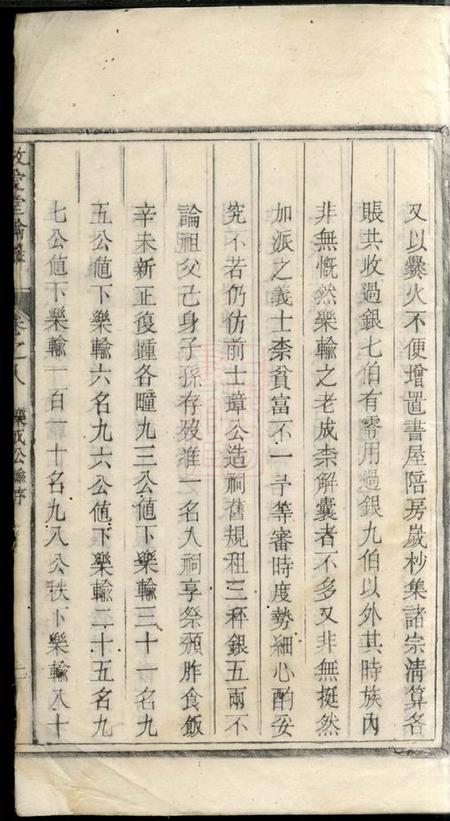 又以爨火不便增置書屋陪房歲杪集諸宗清算各
賬共收過銀七伯有零用過銀九伯以外其時族內
非無慨然樂輸之老成柰解囊者不多又非無挺然
加派之義士柰貧富不一予等審時度勢細心酌妥
究不若仍仿前士璋公造祠舊規租三秤銀五兩不
論祖父己身子孫存歿准一名入祠享祭頒胙食飯
辛未新正復踵各疃九三公値下樂輸三十一名九
五公値下樂輸六名九六公値下樂輸二十五名九
七公値下樂輸一百一十名九八公秩下樂輸八十
卷之八